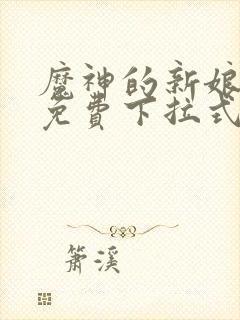 魔神的新娘
免費下拉式
箫溪